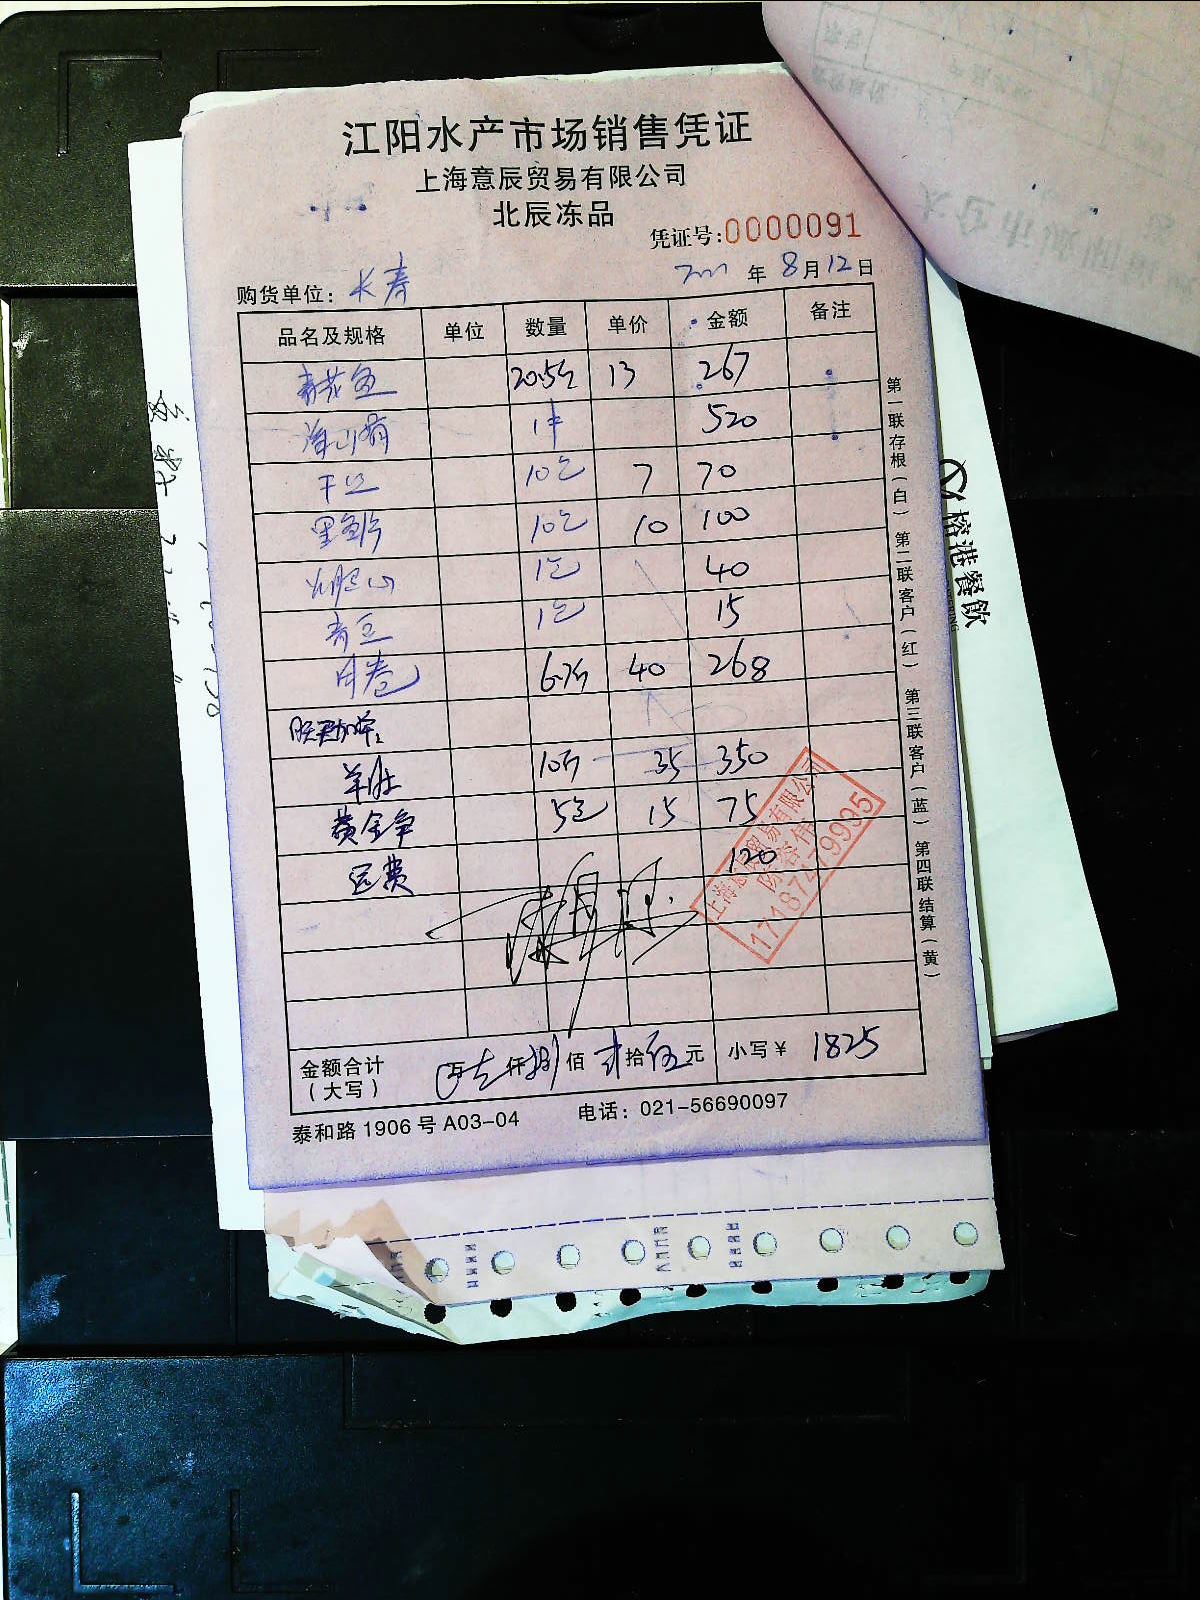 江阳水产市场销售凭证
上海意辰贸易有限公司
北辰冻品
凭证号:0000091
购货单位: 长寿 年 8月12日
品名及规格 单位 数量 单价 金额 备注
青花鱼 20.5斤 13 267
1件 520
干豆 10包 7 70
黑鱼片 10包 10 100
1包 40
青豆 1包 15
肉卷 6.7斤 40 268
羊肚 10斤 35 350
黄金 5包 15 75
运费 120
上海意辰贸易有限公司
17187479995
金额合计 万 壹 仟 捌 佰 贰 拾 伍 元 小写￥ 1825
(大写)
泰和路1906号A03-04 电话: 021-56690097
第一联存根(白) 第二联客户(红) 第三联客户(蓝) 第四联结算(黄)
榕港餐飲